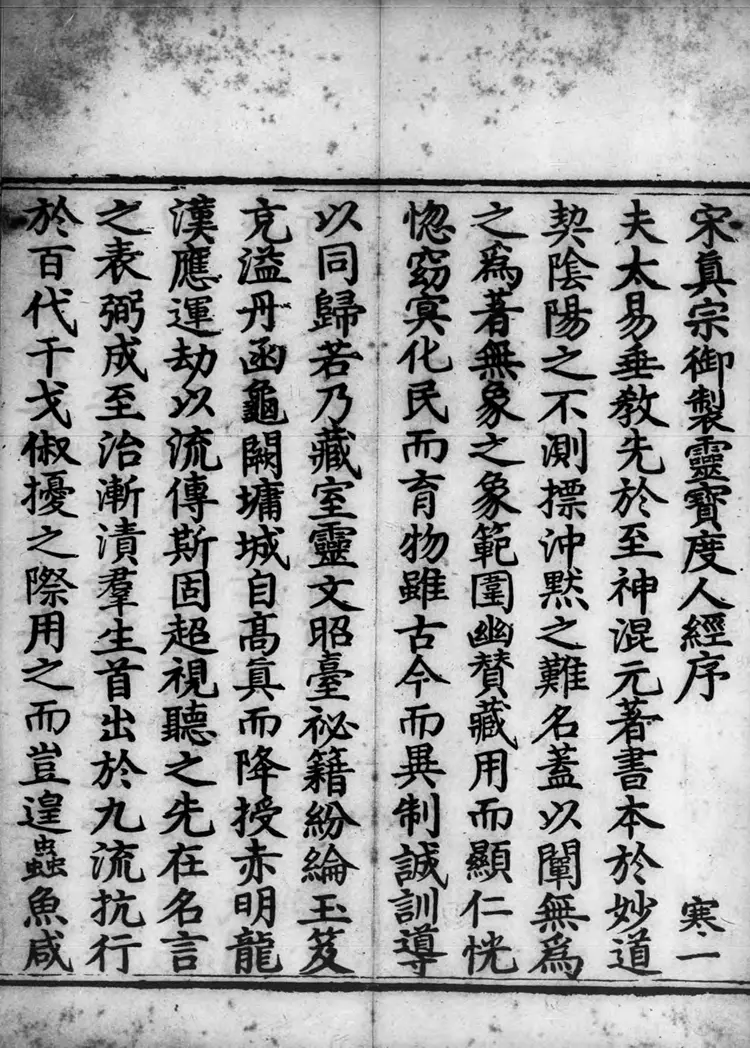 宋真宗御製靈寶度人經序 寒一
夫太易垂教先於至神混元著書本於妙道
契陰陽之不測摽沖默之難名蓋以闡無為
之為著無象之象範圍幽賛藏用而顯仁恍
惚窈冥化民而育物雖古今而異制誠訓導
以同歸若乃藏室靈文昭臺祕籍紛綸玉笈
充溢丹函龜闕墉城自高真而降授赤明龍
漢應運劫以流傳斯固超視聽之先在名言
之表弼成至治漸漬羣生首出於九流抗行
於百代干戈俶擾之際用之而豈遑蟲魚咸